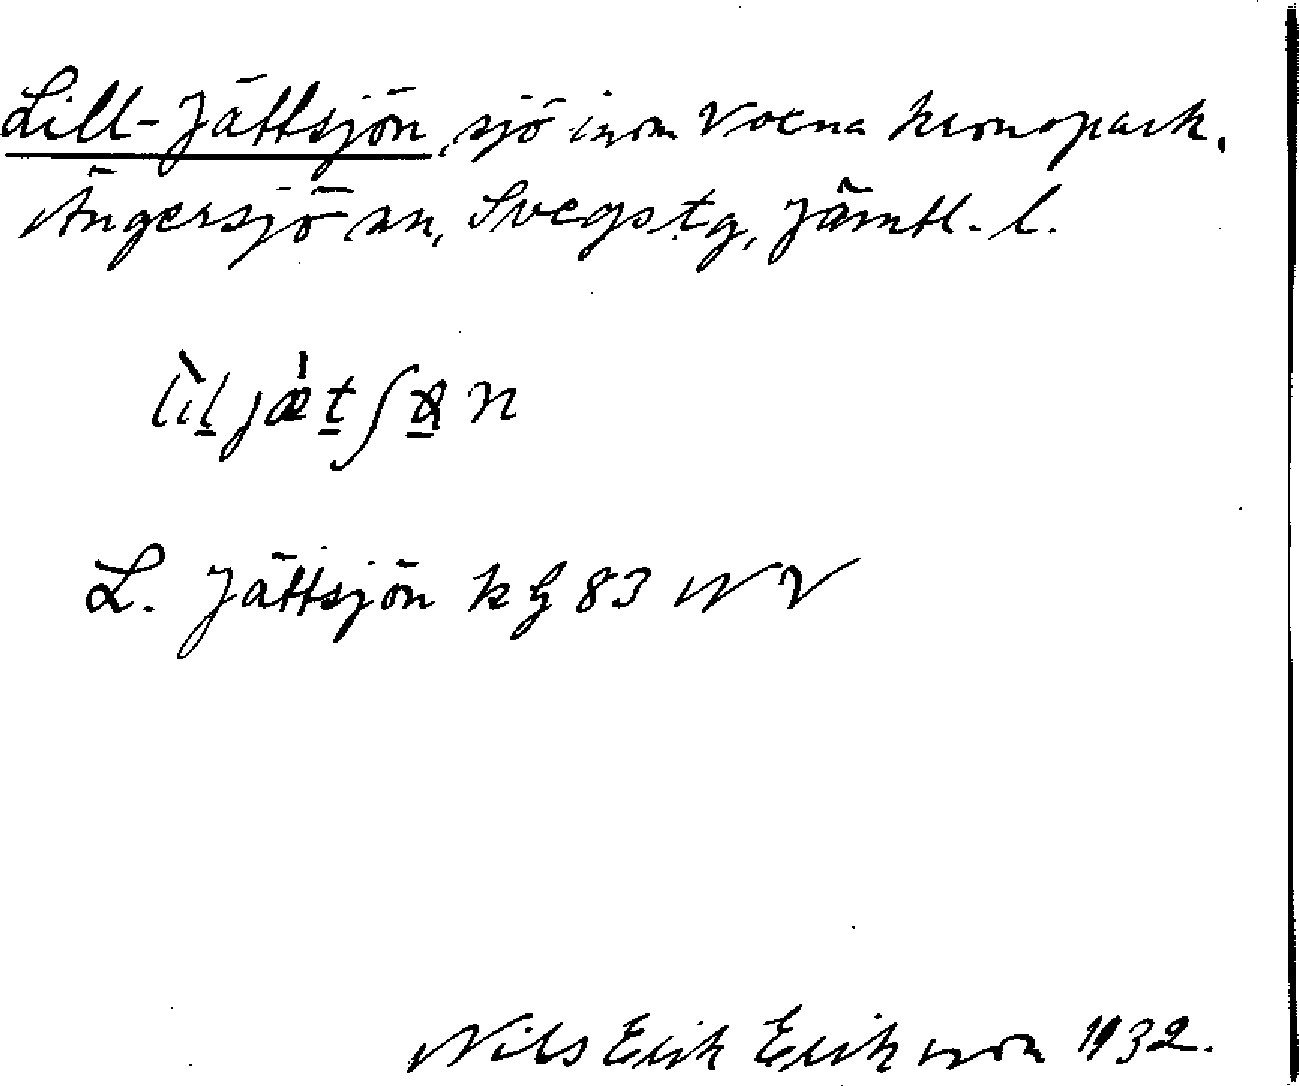 Lill-Jättsjön, sjö inom Voxna kronopark.
Ängersjö sn, Svegs tg, Jämtl. l.
lìl jæ̍tʃøn
L. Jättsjön kg 83 NV
Nils Erik Eriksson 1932.